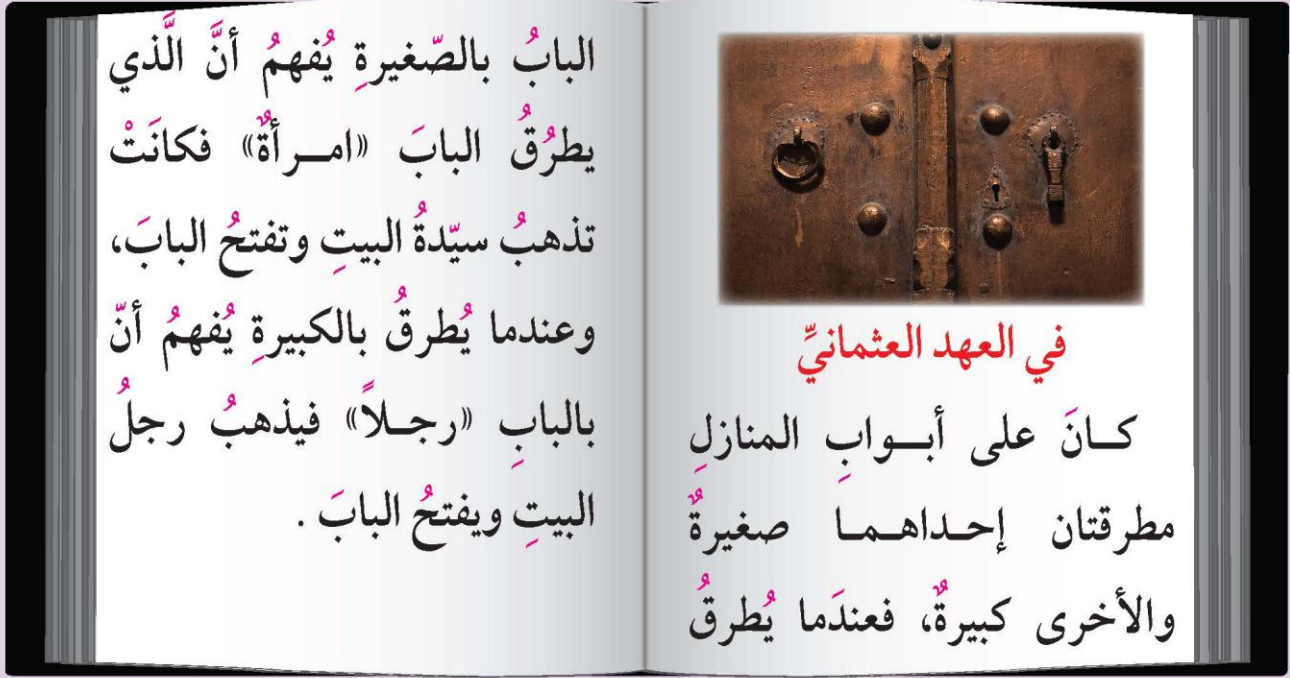 في العهد العثمانيِّ
كـانَ على أبـوابِ المنازلِ
مطرقتان إحـداهـمـا صغيرةٌ
والأخرى كبيرةٌ، فعندَما يُطرقُ
البابُ بالصّغيرةِ يُفهمُ أنَّ الَّذي
يطرُقُ البابَ «امـرأةٌ» فكانَتْ
تذهبُ سيّدةُ البيتِ وتفتحُ البابَ،
وعندما يُطرقُ بالكبيرةِ يُفهمُ أنّ
بالبابِ «رجـلاً» فيذهبُ رجلُ
البيتِ ويفتحُ البابَ .